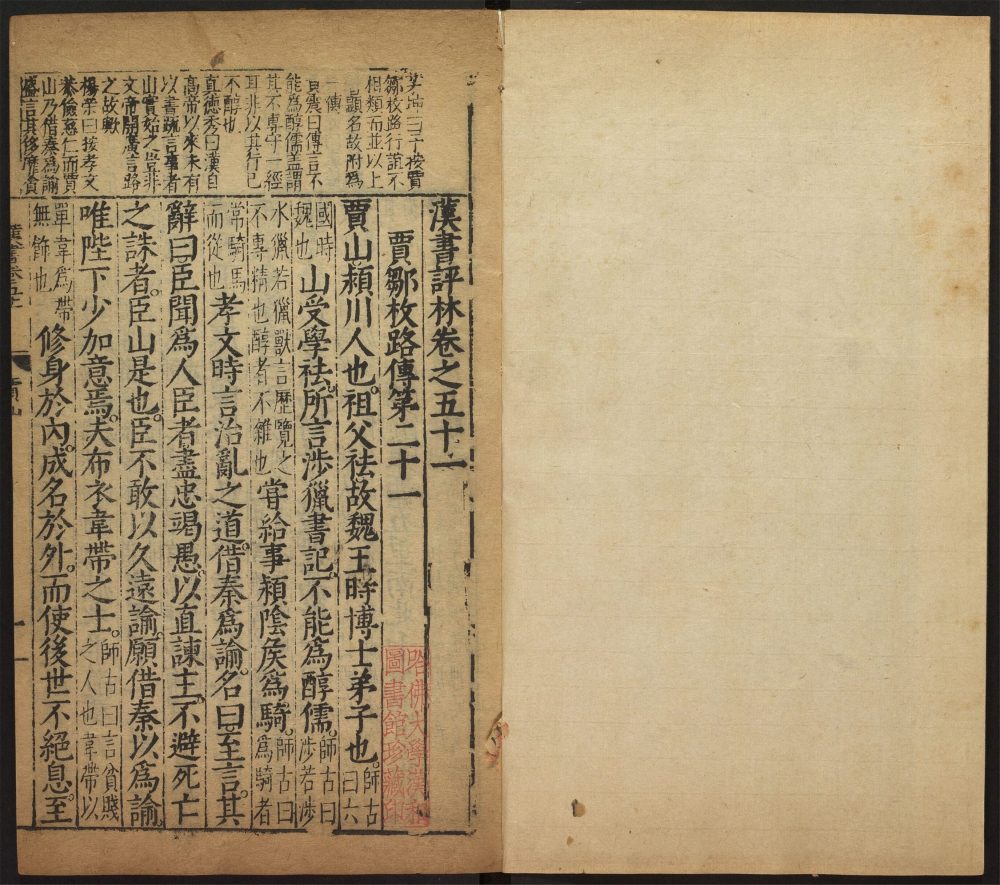 漢書評林卷之五十一
賈鄒枚路傳第二十一
賈山潁川人也祖父祛故魏王時博士弟子也師古曰六
國時魏也山受學祛所言涉獵書記不能爲醇儒師古曰涉若涉
水獵若獵獸言歷覽之不專精也醇者不雜也甞給事潁陰侯爲騎師古曰爲騎者
常騎馬而從也孝文時言治亂之道借秦爲諭名曰至言其
辭曰臣聞爲人臣者盡忠竭愚以直諫主不避死亡
之誅者臣山是也臣不敢以久遠諭願借秦以爲諭
唯陛下少加意焉夫布衣韋帶之士師古曰言貧賤之人也韋帶以
單韋爲帶無飾也修身於內成名於外而使後世不絕息至
曰予按賈
鄒枚路行誼不
相類而並以上
顯名故附爲
一傳
曰傳言不
能爲醇儒盖謂
其不專守一經
耳非以其行已
不醇也
真德秀曰漢自
高帝以來未有
以書疏言事者
山實始之豈非
文帝開廣言路
之故歟
楊榮曰按孝文
恭儉慈仁而賈
山乃借秦爲諭
盛言其後靡貪
賈山
哈佛大學漢和
圖書館珍藏印